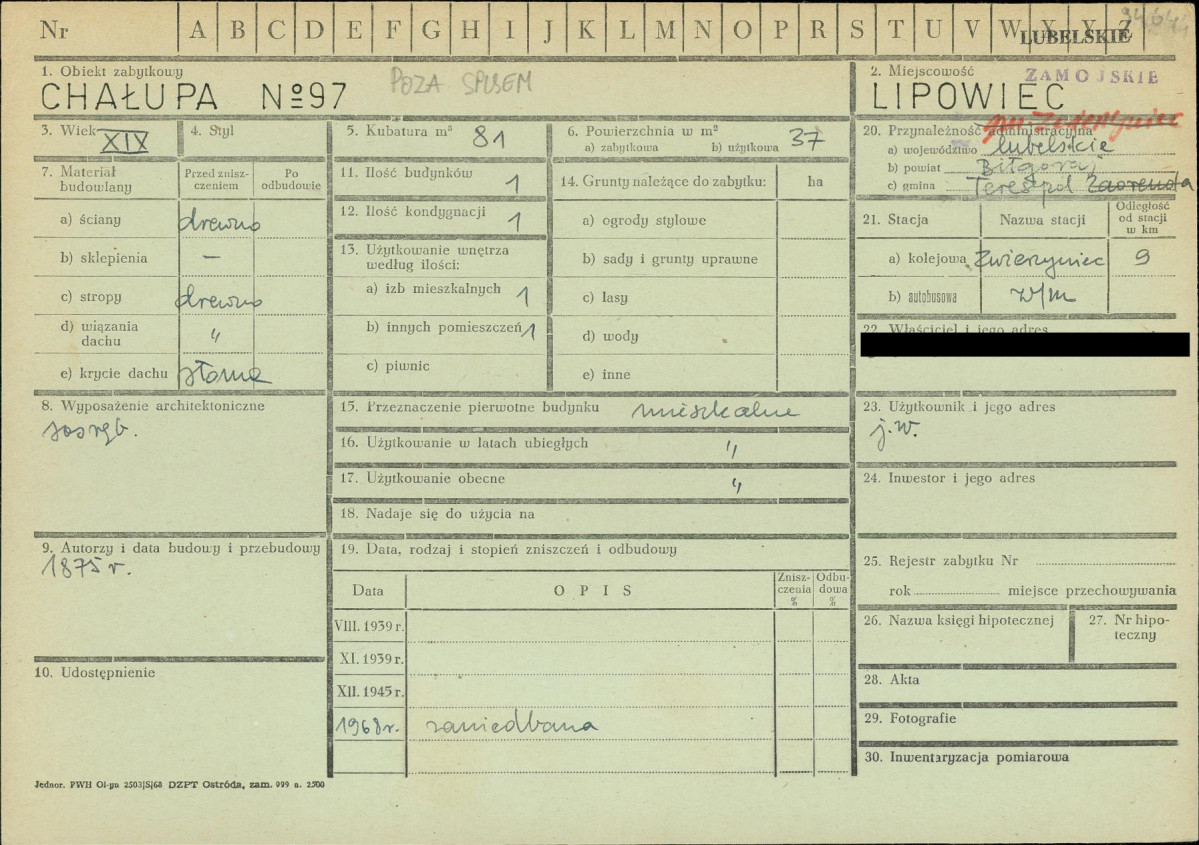 Nr A B C D E F G H I J K L M N O P R S T U V W X Y Z
LUBELSKIE
1. Obiekt zabytkowy
CHAŁUPA Nº 97
POZA SPISEM
2. Miejscowość
ZAMOJSKIE
LIPOWIEC
3. Wiek
XIX
4. Styl
5. Kubatura m³ 81
6. Powierzchnia w m² 37
a) zabytkowa b) użytkowa
20. Przynależność administracyjna
a) województwo lubelskie
b) powiat Biłgoraj
c) gmina Terespol Zaorenda
7. Materiał budowlany
Przed zniszczeniem
Po odbudowie
a) ściany drewno
b) sklepienia —
c) stropy drewno
d) wiązania dachu "
e) krycie dachu słoma
11. Ilość budynków 1
12. Ilość kondygnacji 1
13. Użytkowanie wnętrza
według ilości:
a) izb mieszkalnych 1
b) innych pomieszczeń 1
c) piwnic
14. Grunty należące do zabytku: ha
a) ogrody stylowe
b) sady i grunty uprawne
c) lasy
d) wody
e) inne
21. Stacja Nazwa stacji Odległość od stacji w km
a) kolejowa Zwierzyniec 9
b) autobusowa w/m
22. Właściciel i jego adres
8. Wyposażenie architektoniczne
sosręb.
15. Przeznaczenie pierwotne budynku mieszkalne
16. Użytkowanie w latach ubiegłych "
17. Użytkowanie obecne "
18. Nadaje się do użycia na
23. Użytkownik i jego adres
j.w.
24. Inwestor i jego adres
9. Autorzy i data budowy i przebudowy
1875 r.
19. Data, rodzaj i stopień zniszczeń i odbudowy
Data OPIS Zniszczenia % Odbudowa %
VIII. 1939 r.
XI. 1939 r.
XII. 1945 r.
1968 r. zaniedbana
25. Rejestr zabytku Nr
rok miejsce przechowywania
26. Nazwa księgi hipotecznej
27. Nr hipoteczny
10. Udostępnienie
28. Akta
29. Fotografie
30. Inwentaryzacja pomiarowa
Jednor. PWH Ol-yn 2503|S|68 DZPT Ostróda, zam. 999 n. 2500